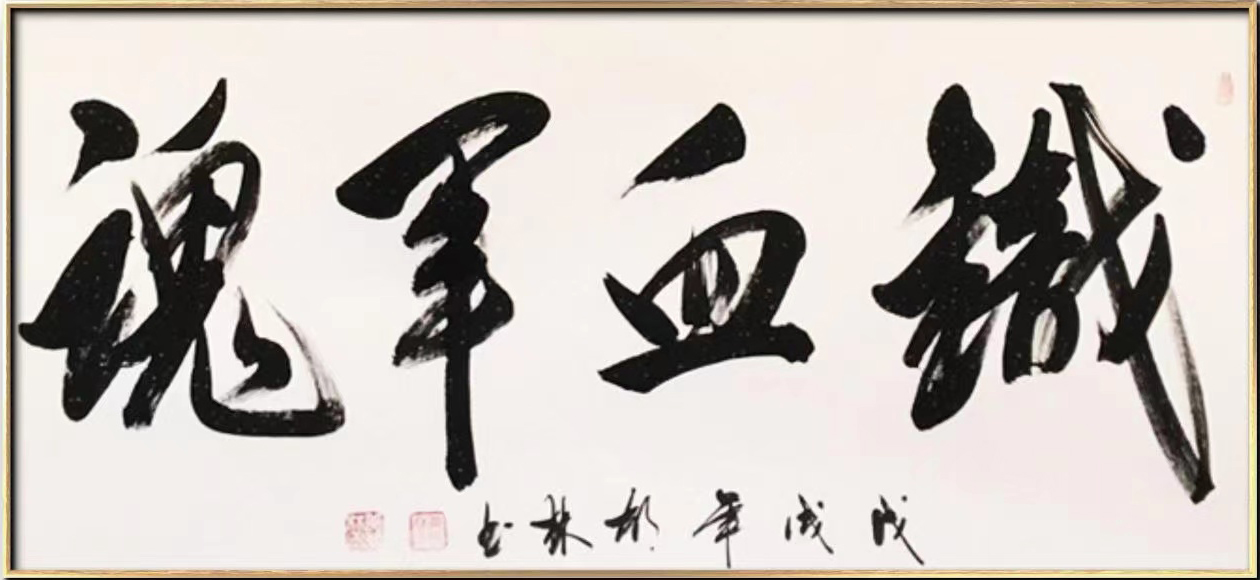 鐵血軍魂
戊戌年林书